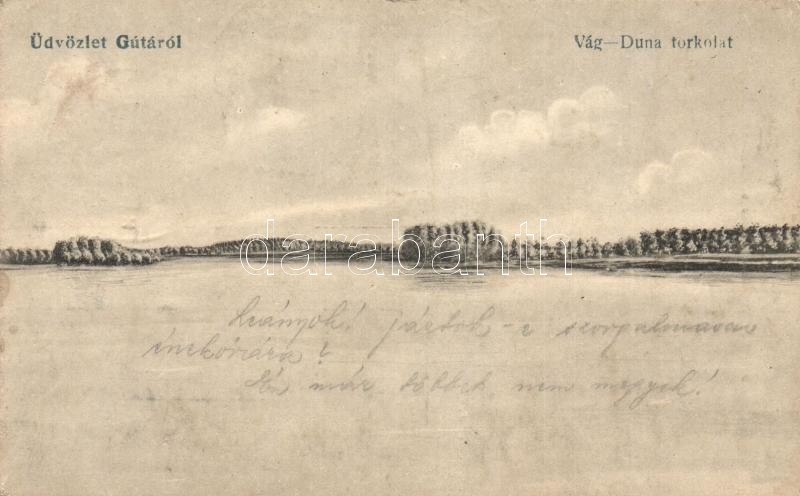 Üdvözlet Gútáról
Vág—Duna torkolat
darabanth
Leányok! jártok-e szorgalmasan
énekórára?
Én már többet nem megyek!